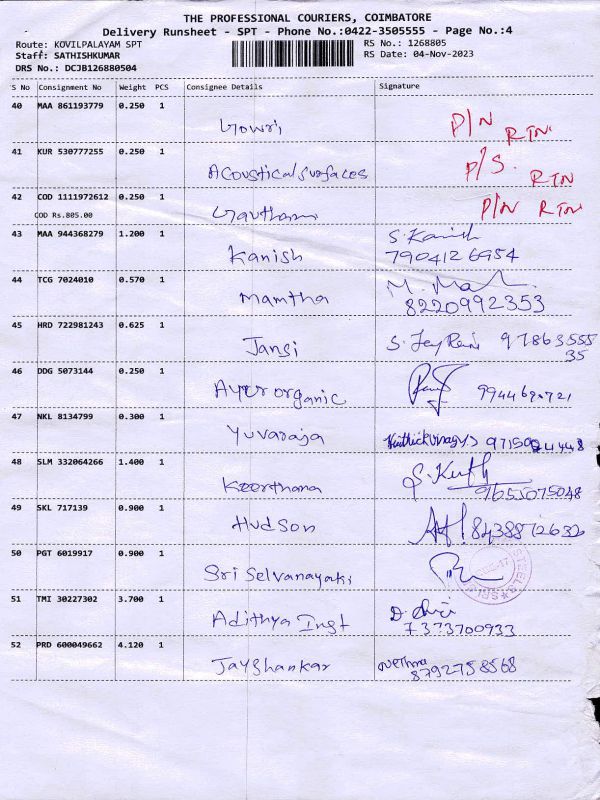 THE PROFESSIONAL COURIERS, COIMBATORE
Delivery Runsheet - SPT - Phone No.:0422-3505555 - Page No.:4
Route: KOVILPALAYAM SPT RS No.: 1268805
Staff: SATHISHKUMAR RS Date: 04-Nov-2023
DRS No.: DCJB126880504
S No Consignment No Weight PCS Consignee Details Signature
40 MAA 861193779 0.250 1
Gowri P/N RTN
41 KUR 530777255 0.250 1
Acoustical surfaces P/S. RTN
42 COD 1111972612 0.250 1
COD Rs.805.00 Gauthami P/N RTN
43 MAA 944368279 1.200 1 S. Kanish
Kanish 7904126954
44 TCG 7024010 0.570 1 M. 
Mamtha 8220992353
45 HRD 722981243 0.625 1
Jansi S. 97863555
35
46 DDG 5073144 0.250 1
Ayur organic
47 NKL 8134799 0.300 1
Yuvaraja
48 SLM 332064266 1.400 1
Keerthana 9655075048
49 SKL 717139 0.900 1
Hudson 8438872632
50 PGT 6019917 0.900 1
Sri Selvanayaki
51 TMI 30227302 3.700 1
Adithya Inst 7373700933
52 PRD 600049662 4.120 1
Jayshankar 8792758568